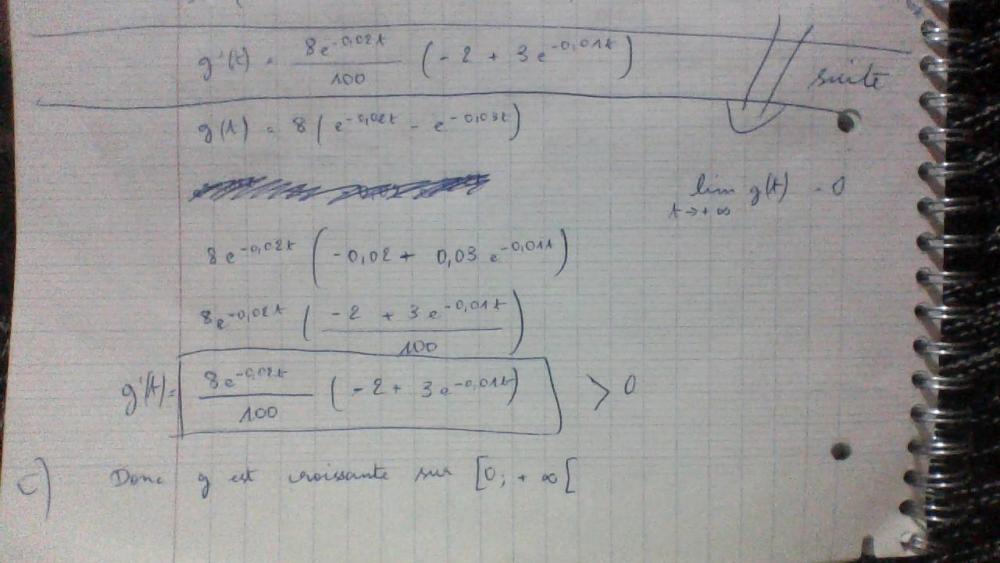 g'(t) = 8e^-0,02t / 100 ( - 2 + 3e^-0,01t )
suite
g(t) = 8 ( e^-0,02t - e^-0,03t )
lim g(t) = 0
t → + ∞
8e^-0,02t ( -0,02 + 0,03 e^-0,01t )
8e^-0,02t ( -2 + 3e^-0,01t / 100 )
g'(t) = 8e^-0,02t / 100 ( - 2 + 3e^-0,01t ) > 0
c) Donc g est croissante sur [0; + ∞[